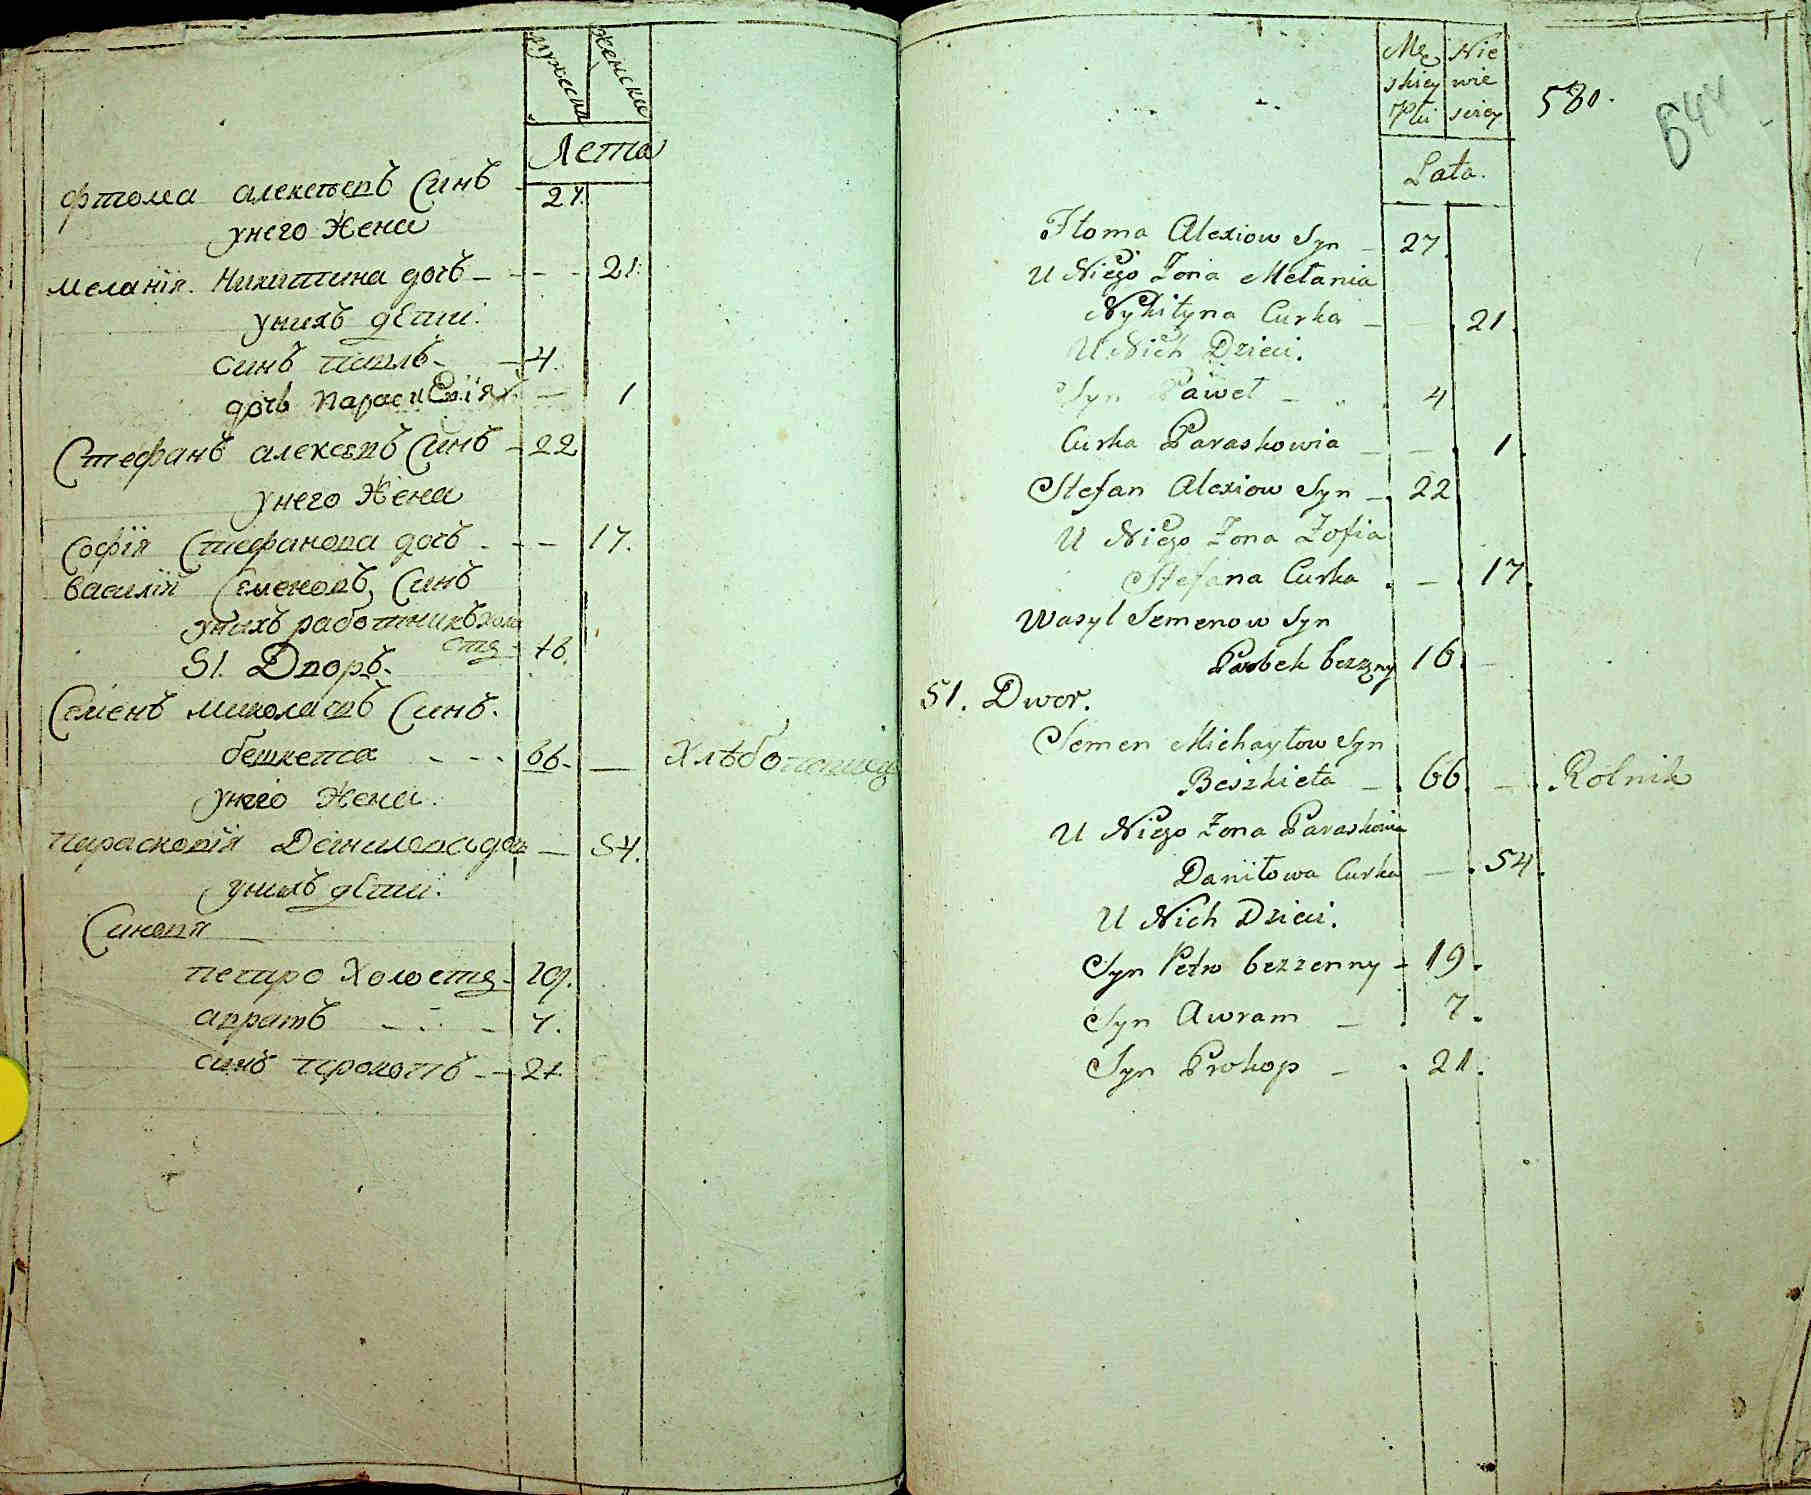 мужеска женска
Лета
Фтома алексеевъ Синъ - 27.
унего Жена
меланія Никитина дочь - - - 21.
унихъ дети.
синъ павлъ - - 4.
дочь параскевія - 1
Стефанъ алексеевъ Синъ - 22
унего Жена
Софія Стефанова дочь - - - 17.
василій Семеновъ Синъ
унихъ работникъ холо
стъ - 16.
51. Дворъ.
Семенъ миколаевъ Синъ.
бешкета - - - 66. - Хлѣбопашецъ
унего Жена.
параскевія Данилова дочь - 54.
унихъ дети.
Синовя
петро Холостъ - 19.
аврамъ - - - 7.
синъ прокопъ - - 21.
Mę Nie
skiey wie
Płci sciey
580.
544
Lata.
Ftoma Alexiow Syn - 27.
U Niego Żona Mełania
Nykityna Curka - - 21.
U Nich Dzieci.
Syn Paweł - - 4
Curka Paraskowia - - 1.
Stefan Alexiow Syn - 22
U Niego Żona Zofia
Stefana Curka - 17.
Wasyl Semenow Syn
Parobek bezżeny 16. -
51. Dwor.
Semen Michayłow Syn
Beszkieta - 66. - Rolnik
U Niego Żona Paraskowia
Daniłowa Curka - 54.
U Nich Dzieci.
Syn Petro bezzenny - 19.
Syn Awram - 7.
Syn Prokop - 21.